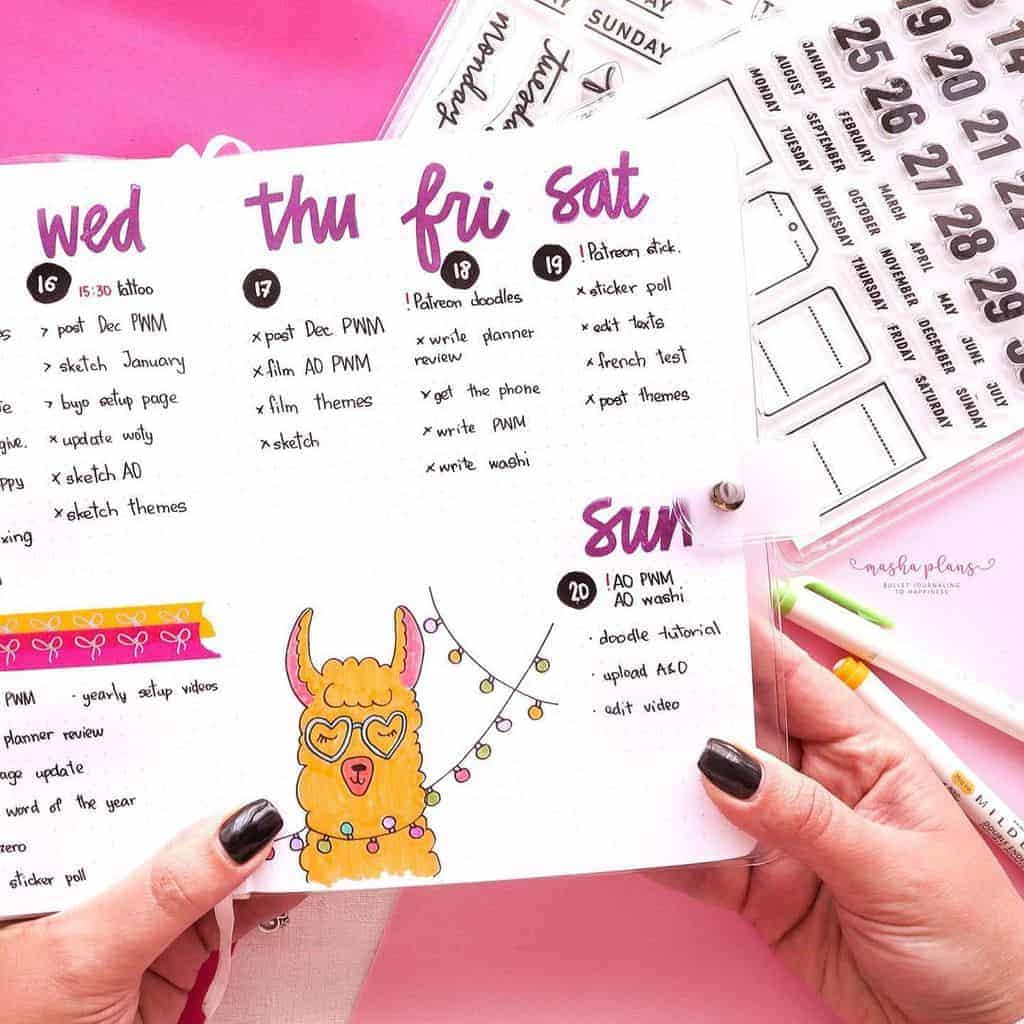 wed
16
15:30 tattoo
> post Dec PWM
> sketch January
> bujo setup page
x update woty
x sketch AO
x sketch themes
give.
ppy
xing
thu
17
x post Dec PWM
x film AO PWM
x film themes
x sketch
fri
18
! Patreon doodles
x write planner
review
x get the phone
x write PWM
x write washi
sat
19
! Patreon stick.
x sticker poll
x edit texts
x french test
x post themes
sun
20
! AO PWM
AO washi
· doodle tutorial
· upload A&O
· edit video
PWM · yearly setup videos
planner review
age update
word of the year
zero
sticker poll
SUNDAY
monday
tuesday
JANUARY
FEBRUARY
MARCH
APRIL
MAY
JUNE
JULY
AUGUST
SEPTEMBER
OCTOBER
NOVEMBER
DECEMBER
MONDAY
TUESDAY
WEDNESDAY
THURSDAY
FRIDAY
SATURDAY
SUNDAY
25
26
27
28
29
19
20
21
22
14
masha plans
BULLET JOURNALING
TO HAPPINESS
MILD